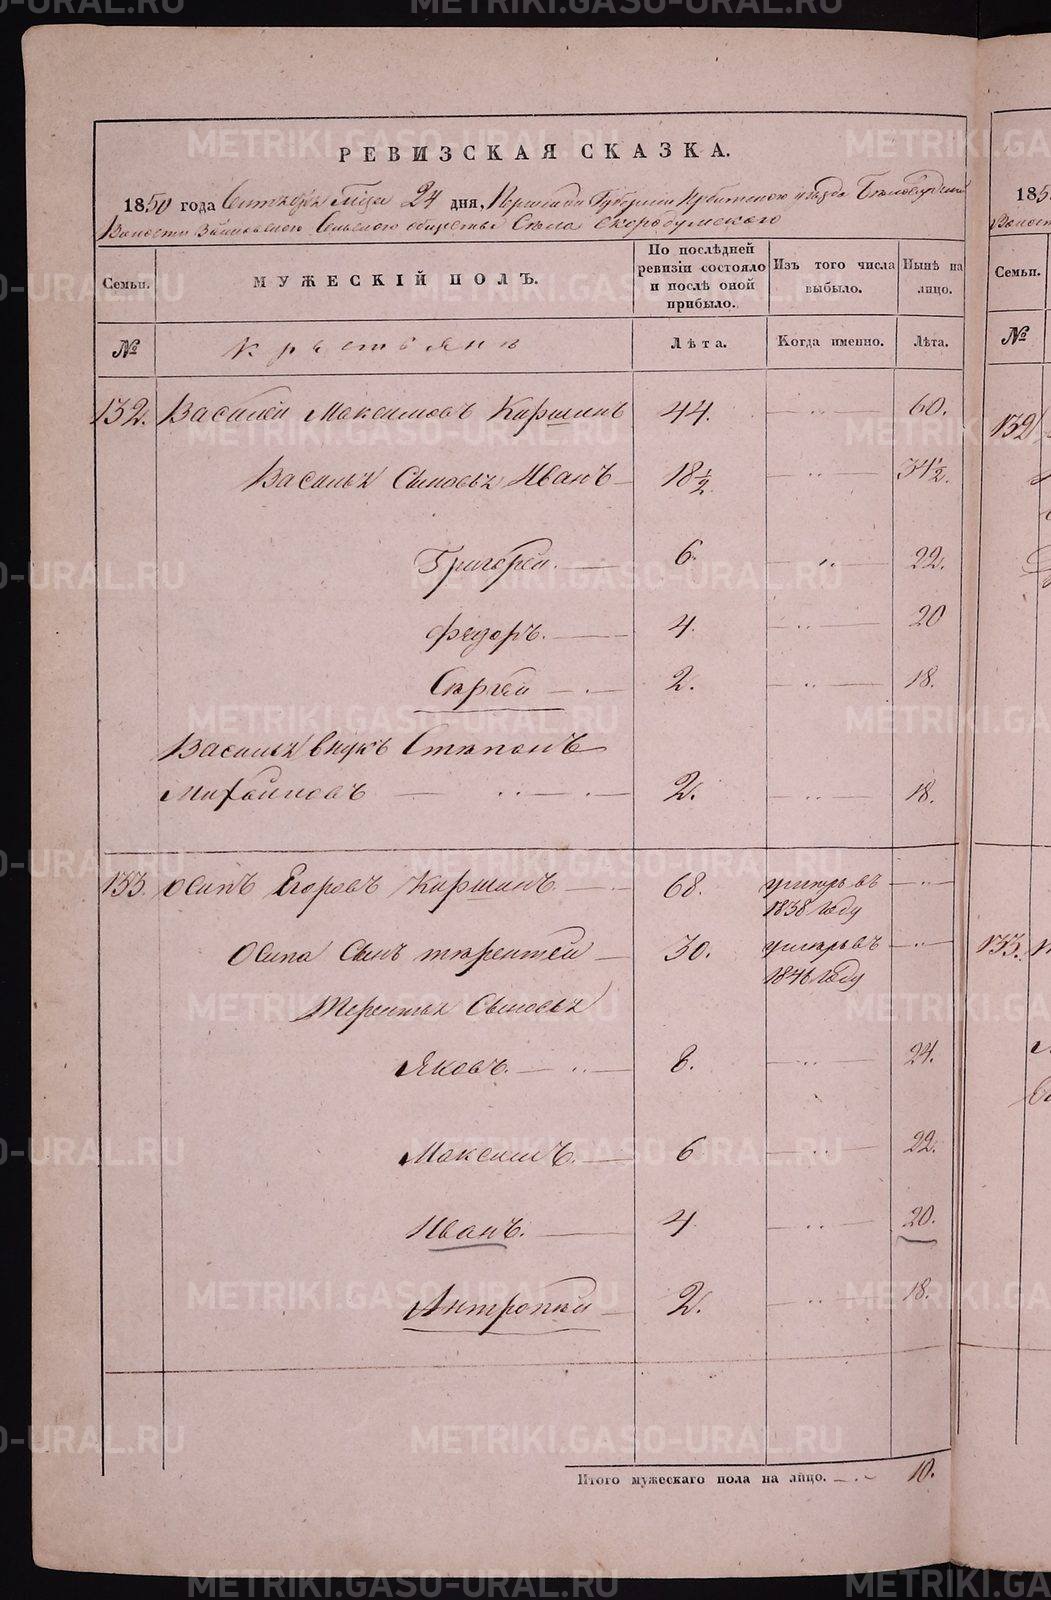 РЕВИЗСКАЯ СКАЗКА.
1850 года Сентября Мца 24 дня, Пермской Губернии Ирбитскаго уѣзда Бѣлослудской
Волости Зайковскаго Сельскаго общества Села Скородумскаго
Семьи. МУЖЕСКІЙ ПОЛЪ. По послѣдней ревизіи состояло и послѣ оной прибыло. Изъ того числа выбыло. Нынѣ на лицо.
№ Крестьяне Лѣта. Когда именно. Лѣта.
132. Василей Максимовъ Киршинъ 44. 60.
Василья Сыновья Иванъ 18½ 34½.
Григорей. 6. 22.
Федоръ. 4. 20
Сергей 2. 18.
Василья внукъ Степанъ
Михайловъ 2. 18.
133. Осипъ Егоровъ Киршинъ 68. умеръ въ
1838 году
Осипа Сынъ терентей 30. умеръ въ
1846 году
Терентья Сыновья
Яковъ. 8. 24.
Максимъ. 6 22.
Иванъ. 4 20.
Антропей 2. 18.
Итого мужескаго пола на лицо. 10.
185
Волост
Семьи.
№
132
133.
METRIKI.GASO-URAL.RU